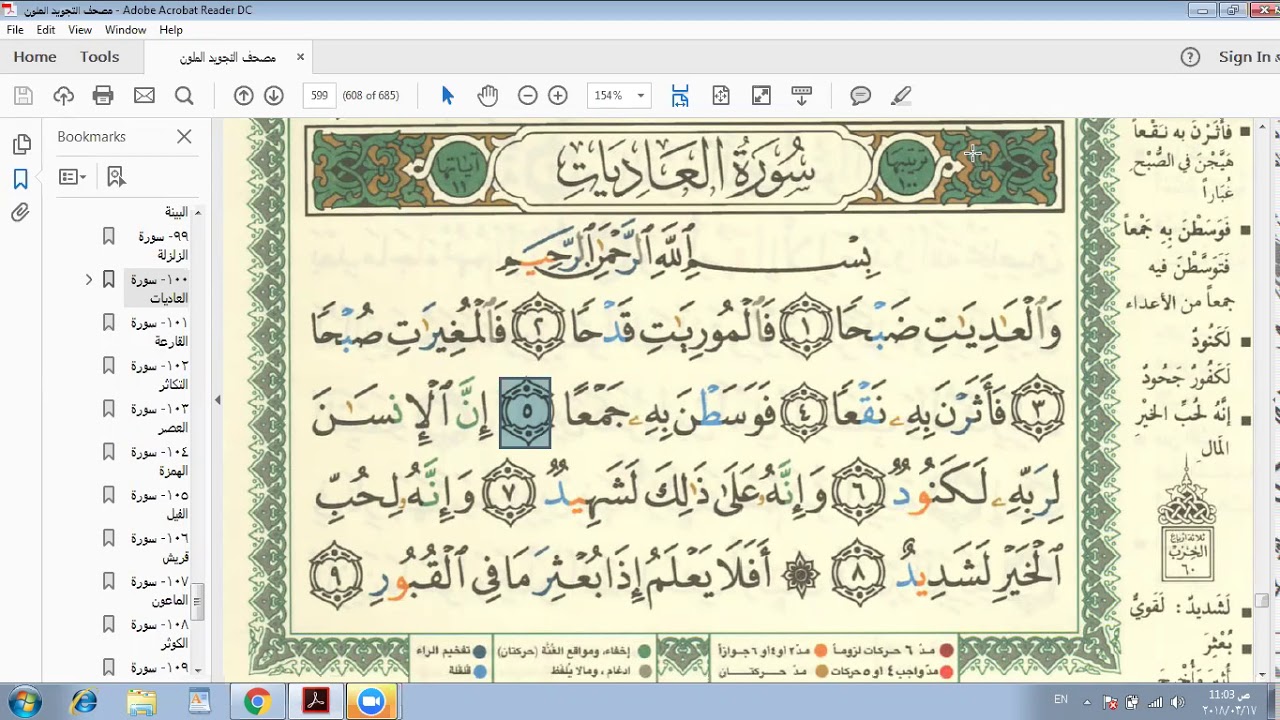 مصحف التجويد الملون - Adobe Acrobat Reader DC
File Edit View Window Help
Home Tools مصحف التجويد الملون × Sign In
599 (608 of 685) 154%
Bookmarks
البينة
٩٩- سورة
الزلزلة
١٠٠- سورة
العاديات
١٠١- سورة
القارعة
١٠٢- سورة
التكاثر
١٠٣- سورة
العصر
١٠٤- سورة
الهمزة
١٠٥- سورة
الفيل
١٠٦- سورة
قريش
١٠٧- سورة
الماعون
١٠٨- سورة
الكوثر
١٠٩- سورة
ترتيبها ١٠٠ سُورَةُ العَادِيَاتِ آياتها ١١
بِسْمِ اللَّهِ الرَّحْمَٰنِ الرَّحِيمِ
وَٱلْعَٰدِيَٰتِ ضَبْحًا ١ فَٱلْمُورِيَٰتِ قَدْحًا ٢ فَٱلْمُغِيرَٰتِ صُبْحًا
٣ فَأَثَرْنَ بِهِۦ نَقْعًا ٤ فَوَسَطْنَ بِهِۦ جَمْعًا ٥ إِنَّ ٱلْإِنسَٰنَ
لِرَبِّهِۦ لَكَنُودٌ ٦ وَإِنَّهُۥ عَلَىٰ ذَٰلِكَ لَشَهِيدٌ ٧ وَإِنَّهُۥ لِحُبِّ
ٱلْخَيْرِ لَشَدِيدٌ ٨ ۞ أَفَلَا يَعْلَمُ إِذَا بُعْثِرَ مَا فِى ٱلْقُبُورِ ٩
فَأَثَرْنَ بِه نَقْعاً
هَيَّجْنَ في الصُّبْحِ
غُبَاراً
فَوَسَطْنَ بِهِ جَمْعاً
فَتَوَسَّطْنَ فيه
جمعاً من الأعداء
لَكَنُودٌ
لَكَفُورٌ جَحُودٌ
إنَّه لحُبِّ الخيْرِ
المَالِ
ثلاثة أرباع
الحزب
٦٠
لَشَديدٌ: لَقَويٌّ
بُعْثِرَ
مدّ ٦ حركات لزوماً مدّ٢ أو٤ او ٦ جوازاً إخفاء، ومواقع الغُنَّة (حركتان) تفخيم الراء
مدّ واجب ٤ او ٥ حركات مدّ حركتان ادغام، ومالا يُلفَظ قلقلة
EN
11:03 ص
٢٠١٨/٠٣/١٧